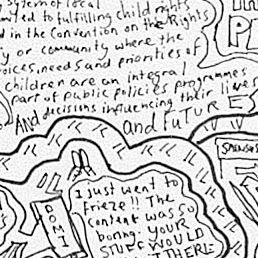 system of local
ted to fulfilling child rights
d in the Convention on the Rights
y or community where the
voices, needs and priorities of
children are an integral
part of public policies programmes
and decisions influencing their lives
and FUTURE
I just went to
Frieze!! The
content was so
boring. YOUR
STUFF WOULD
THERE
DOMI